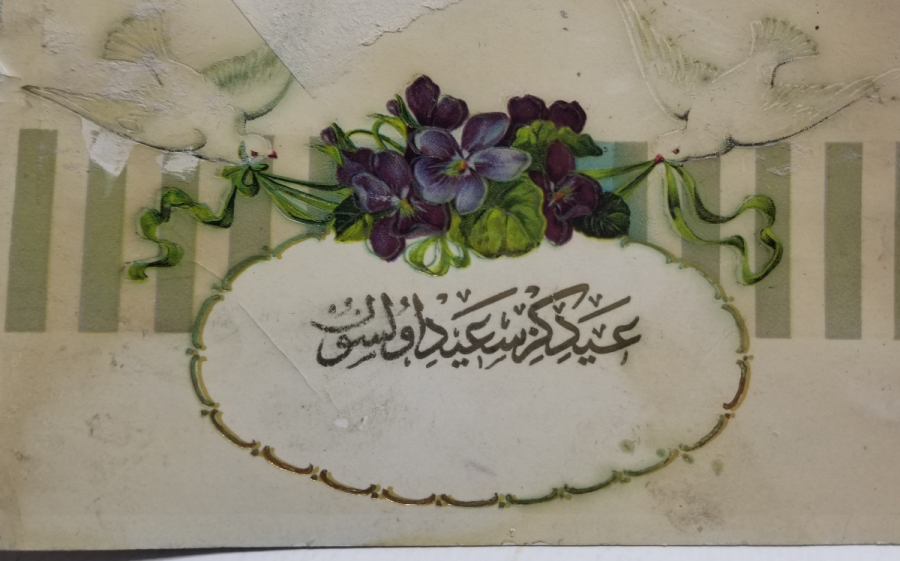 عيدكز سعيد اولسون